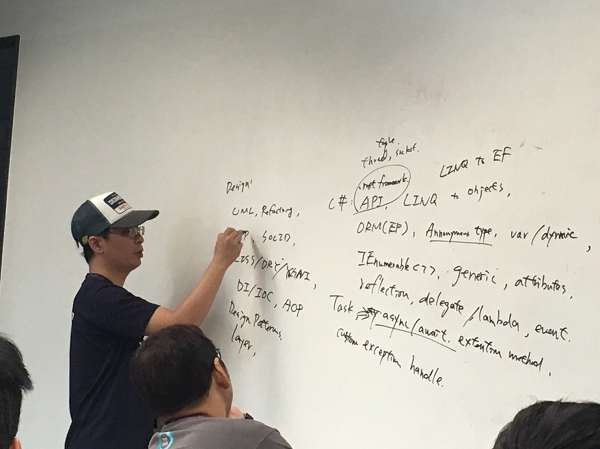 Design:
UML, Refactory,
SOLID,
KISS/DRY/YAGNI
DI/IOC, AOP
Design Patterns.
layer,
thread, socket.
LINQ to EF
.net framework.
C#: API, LINQ to objects,
ORM(EF), Annonymous type, var/dynamic,
IEnumerable<T>, generic, attributes,
reflection, delegate/lambda, event.
Task async/await. extention method,
custom exception handle.